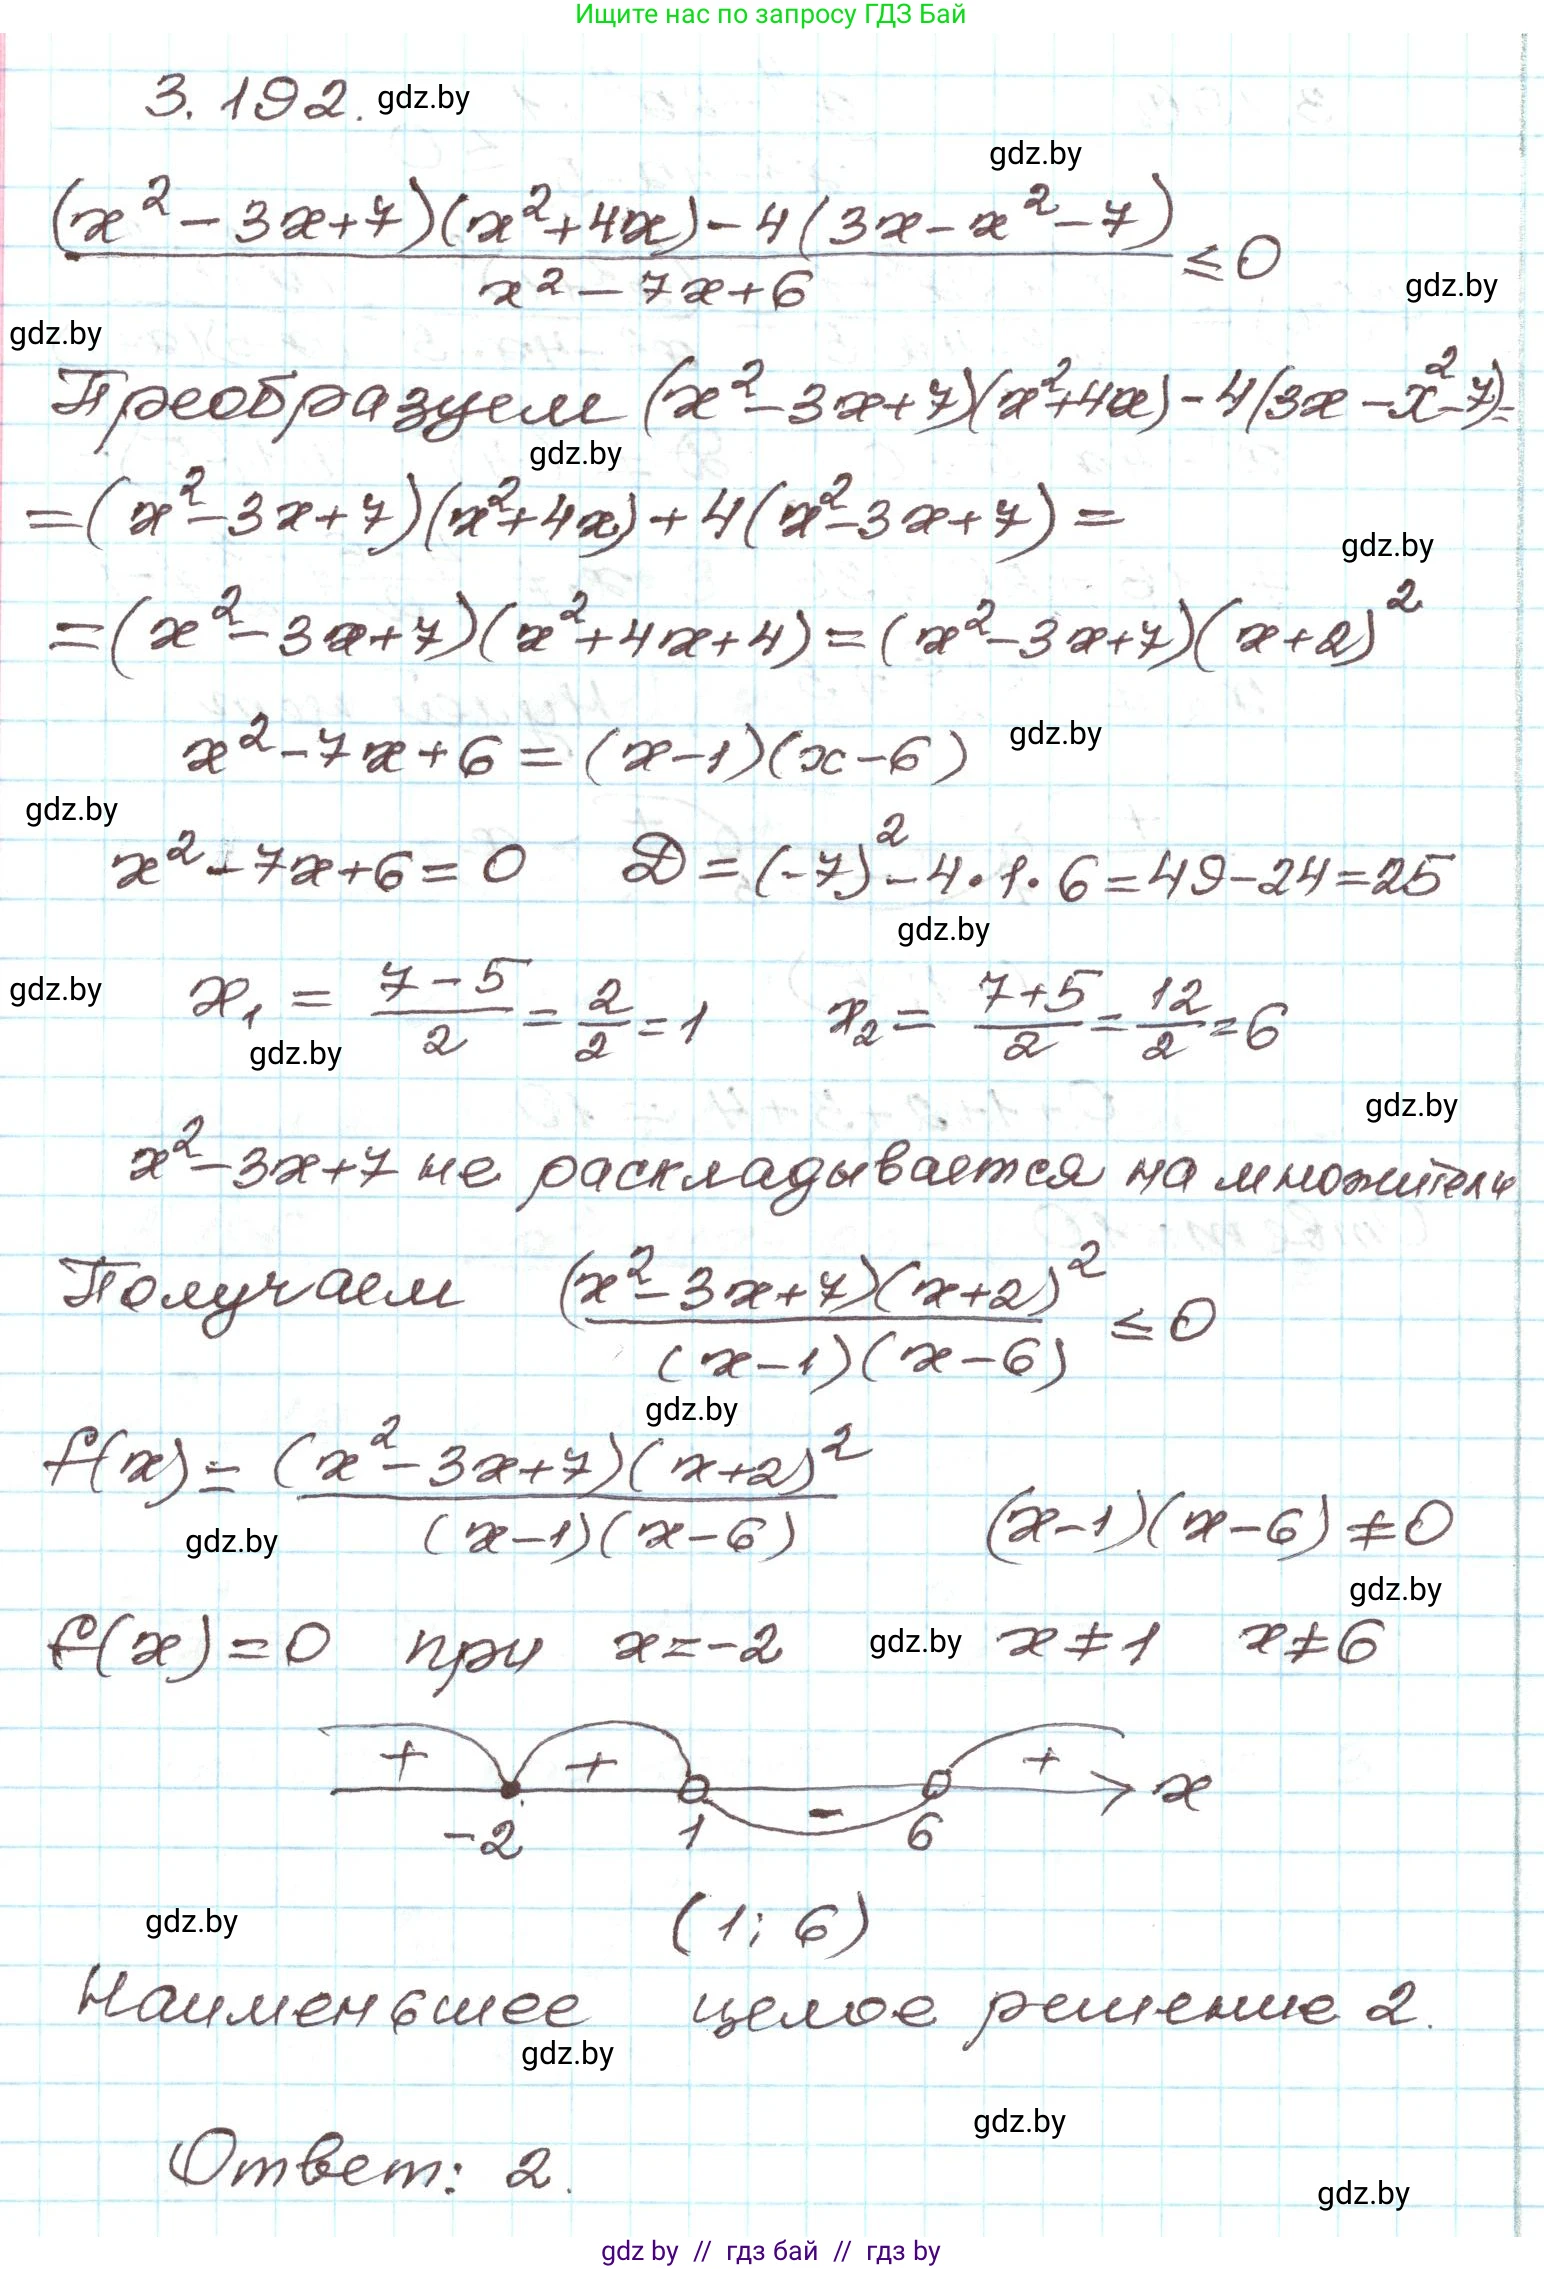 Ищите нас по запросу ГДЗ Бай
3.192. gdz.by
gdz.by
(x² - 3x + 7)(x² + 4x) - 4(3x - x² - 7)
―――――――――――― ≤ 0
x² - 7x + 6
gdz.by
gdz.by
Преобразуем (x² - 3x + 7)(x² + 4x) - 4(3x - x² - 7) =
gdz.by
= (x² - 3x + 7)(x² + 4x) + 4(x² - 3x + 7) =
gdz.by
= (x² - 3x + 7)(x² + 4x + 4) = (x² - 3x + 7)(x + 2)²
x² - 7x + 6 = (x - 1)(x - 6) gdz.by
gdz.by
x² - 7x + 6 = 0 D = (-7)² - 4 · 1 · 6 = 49 - 24 = 25
gdz.by
gdz.by x₁ = (7 - 5)/2 = 2/2 = 1 x₂ = (7 + 5)/2 = 12/2 = 6
gdz.by
gdz.by
x² - 3x + 7 не раскладывается на множители
Получаем (x² - 3x + 7)(x + 2)² / (x - 1)(x - 6) ≤ 0
gdz.by
f(x) = (x² - 3x + 7)(x + 2)² / (x - 1)(x - 6) (x - 1)(x - 6) ≠ 0
gdz.by
gdz.by
f(x) = 0 при x = -2 gdz.by x ≠ 1 x ≠ 6
+ + - + x
-2 1 6
gdz.by (1; 6)
Наименьшее целое решение 2.
gdz.by
gdz.by
Ответ: 2.
gdz.by
gdz by // гдз бай // гдз by